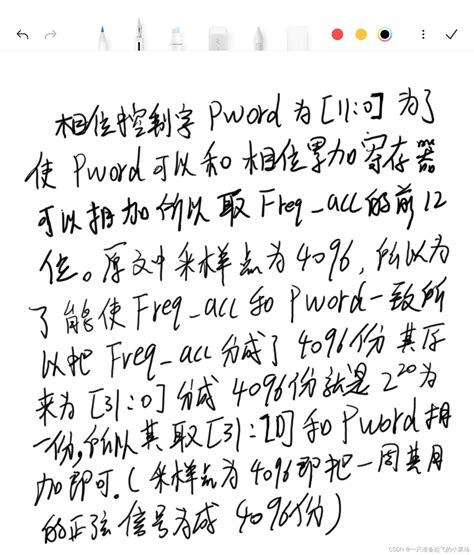 相位控制字 Pword 为 [11:0] 为了
使 Pword 可以和相位累加寄存器
可以相加所以取 Freq_acc的前12
位。原文中采样点为4096,所以为
了能使Freq_acc和Pword一致所
以把 Freq_acc 分成了4096份 其原
来为 [31:0] 分成 4096份就是 2^20为
一份,所以其取[31:20]和Pword相
加即可.(采样点为4096即把一周其月
的正弦信号分成 4096份)
CSDN @一只准备起飞的小菜鸟